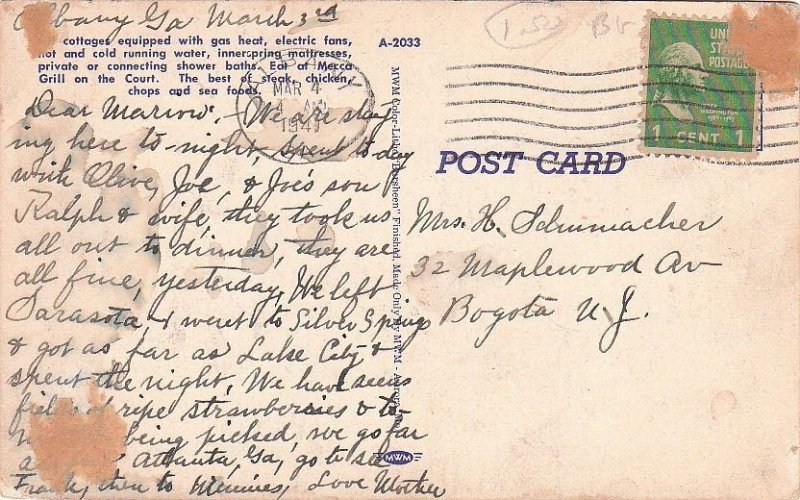 Albany Ga March 3rd
cottages equipped with gas heat, electric fans,
hot and cold running water, innerspring mattresses,
private or connecting shower baths. Eat at Mecca
Grill on the Court. The best of steak, chicken,
chops and sea foods.
A-2033
ALBANY
MAR 4
1947
Dear Marion, - We are stay-
ing here to-night, spent to-day
with Olive, Joe, & Joe's son
Ralph & wife, they took us
all out to dinner, they are
all fine, yesterday, We left
Sarasota, & went to Silver Springs
& got as far as Lake City &
spent the night, We have seen
fields of ripe strawberries & to-
being picked, we go far
Atlanta, Ga, go to see
Frank, then to Minnies, Love Mother
MWM Color-Litho "Durasheen" Finished. Made Only By MWM - Aurora, Mo.
MWM
POST CARD
UNITED
STATES
POSTAGE
1 CENT 1
Mrs. H. Schumacher
32 Maplewood Av
Bogota N.J.